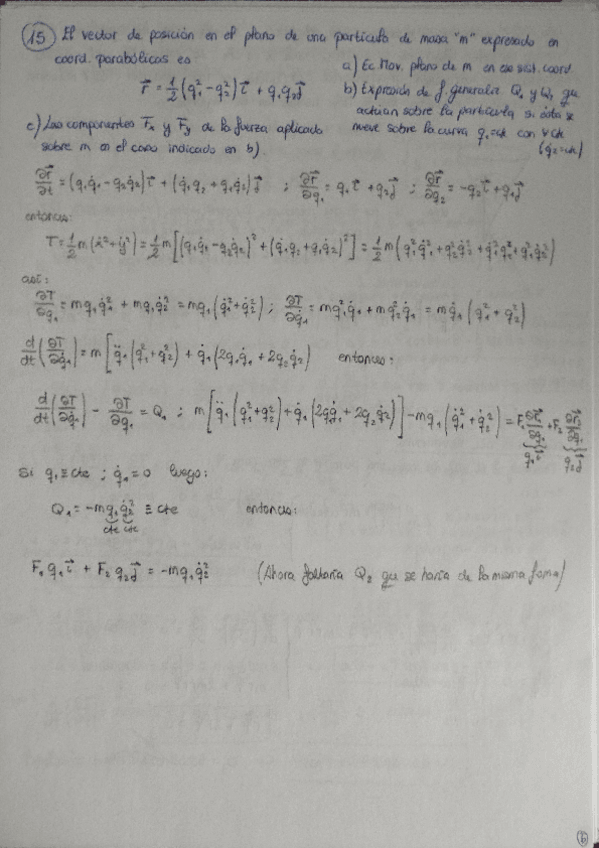 15) El vector de posición en el plano de una partícula de masa "m" expresado en
coord. parabólicas es
a) Ec Mov. plano de m en ese sist. coord.
r⃗ = 1/2 (q₁² - q₂²) i⃗ + q₁q₂ j⃗
b) Expresión de f. generaliz Q₁ y Q₂ que
actúan sobre la partícula si ésta se
mueve sobre la curva q₁=cte con v cte
(q̇₂=cte)
c) Las componentes Fx y Fy de la fuerza aplicada
sobre m en el caso indicado en b).
∂r⃗/∂t = (q₁q̇₁ - q₂q̇₂) i⃗ + (q̇₁q₂ + q₁q̇₂) j⃗ ; ∂r⃗/∂q₁ = q₁ i⃗ + q₂ j⃗ ; ∂r⃗/∂q₂ = -q₂ i⃗ + q₁ j⃗
entonces:
T = 1/2 m (ẋ² + ẏ²) = 1/2 m [(q₁q̇₁ - q₂q̇₂)² + (q̇₁q₂ + q₁q̇₂)²] = 1/2 m (q₁²q̇₁² + q₂²q̇₂² + q̇₁²q₂² + q₁²q̇₂²)
así:
∂T/∂q₁ = mq₁q̇₁² + mq₁q̇₂² = mq₁(q̇₁² + q̇₂²) ; ∂T/∂q̇₁ = mq₁²q̇₁ + mq₂²q̇₁ = mq̇₁(q₁² + q₂²)
d/dt (∂T/∂q̇₁) = m [q̈₁(q₁² + q₂²) + q̇₁(2q₁q̇₁ + 2q₂q̇₂) entonces:
d/dt (∂T/∂q̇₁) - ∂T/∂q₁ = Q₁ ; m [q̈₁(q₁² + q₂²) + q̇₁(2q₁q̇₁ + 2q₂q̇₂)] - mq₁(q̇₁² + q̇₂²) = F₁ ∂r⃗/∂q₁ + F₂ ∂r⃗/∂q₁
q₁ i⃗ q₂ j⃗
Si q₁ ≡ cte ; q̇₁ = 0 luego:
Q₁ = -mq₁q̇₂² ≡ cte entonces:
cte cte
F₁ q₁ i⃗ + F₂ q₂ j⃗ = -mq₁q̇₂² (Ahora faltaría Q₂ que se haría de la misma forma)
6